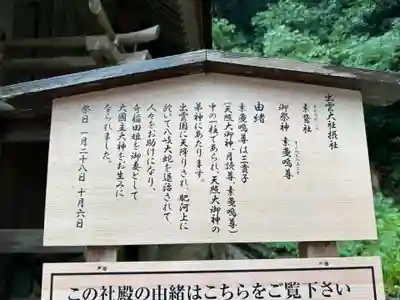 出雲大社摂社
素鵞社
御祭神 素戔嗚尊
由緒
素戔嗚尊は三貴子
(天照大御神・月読尊・素戔嗚尊)
中の一柱であられ、天照大御神の
弟神にあたります。
出雲国に天降りされ、肥河上に
於いて八岐大蛇を退治されて
人々をお助けになり、
奇稲田姫を御妻として
大國主大神をお生みに
なられました。
祭日 一月二十八日 十月六日
この社殿の由緒はこちらをご覧下さい